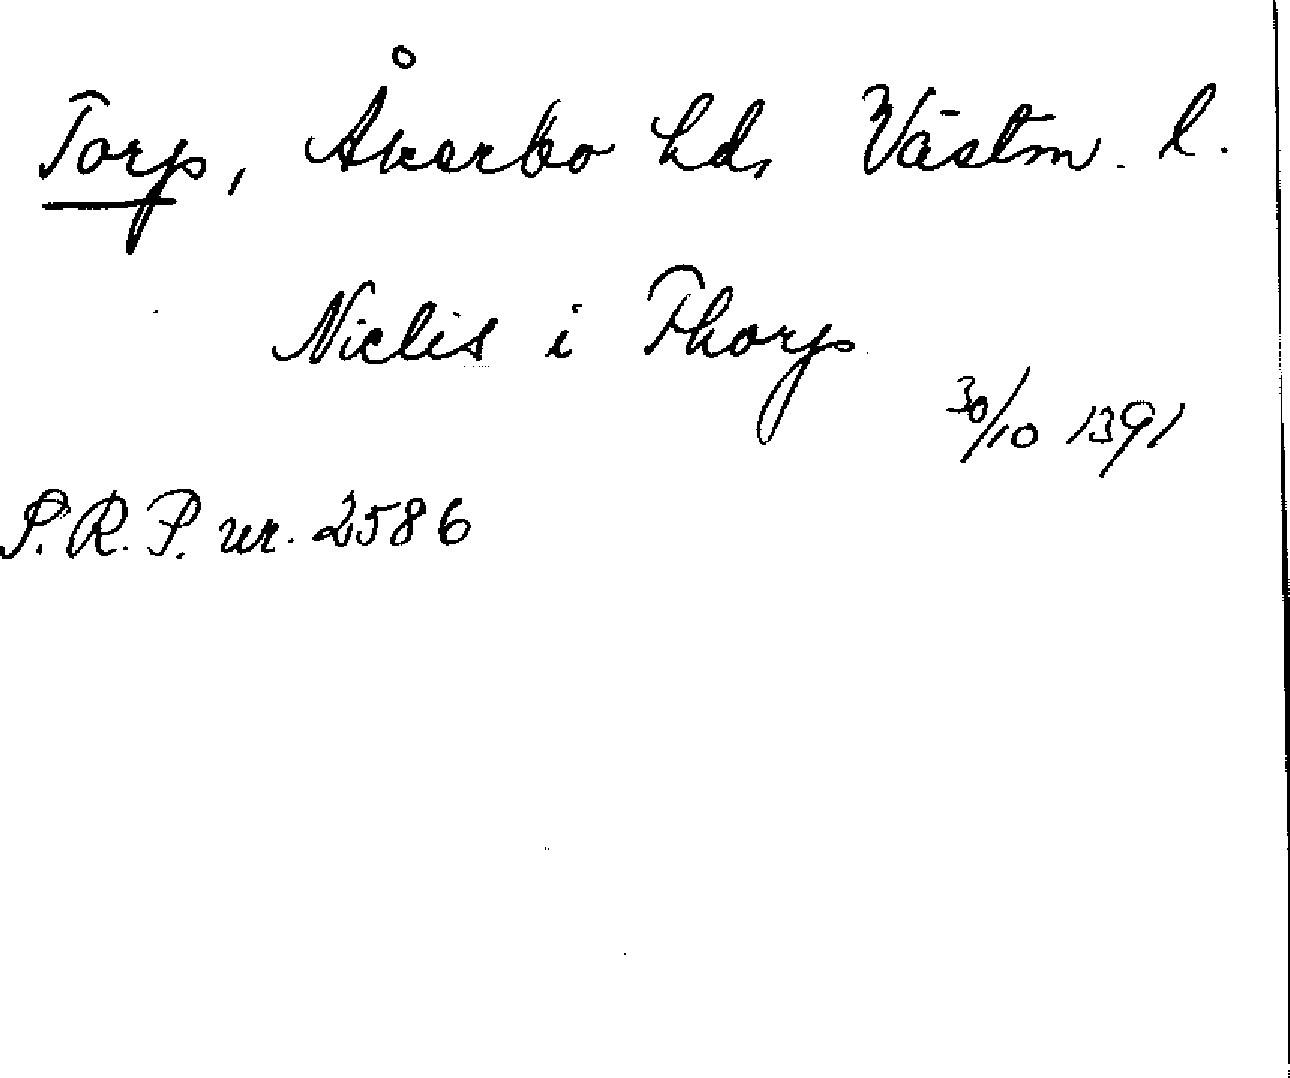 Torp, Åkerbo hd, Västm. l.
Niclis i Thorp
30/10 1391
S.R.P. nr. 2586